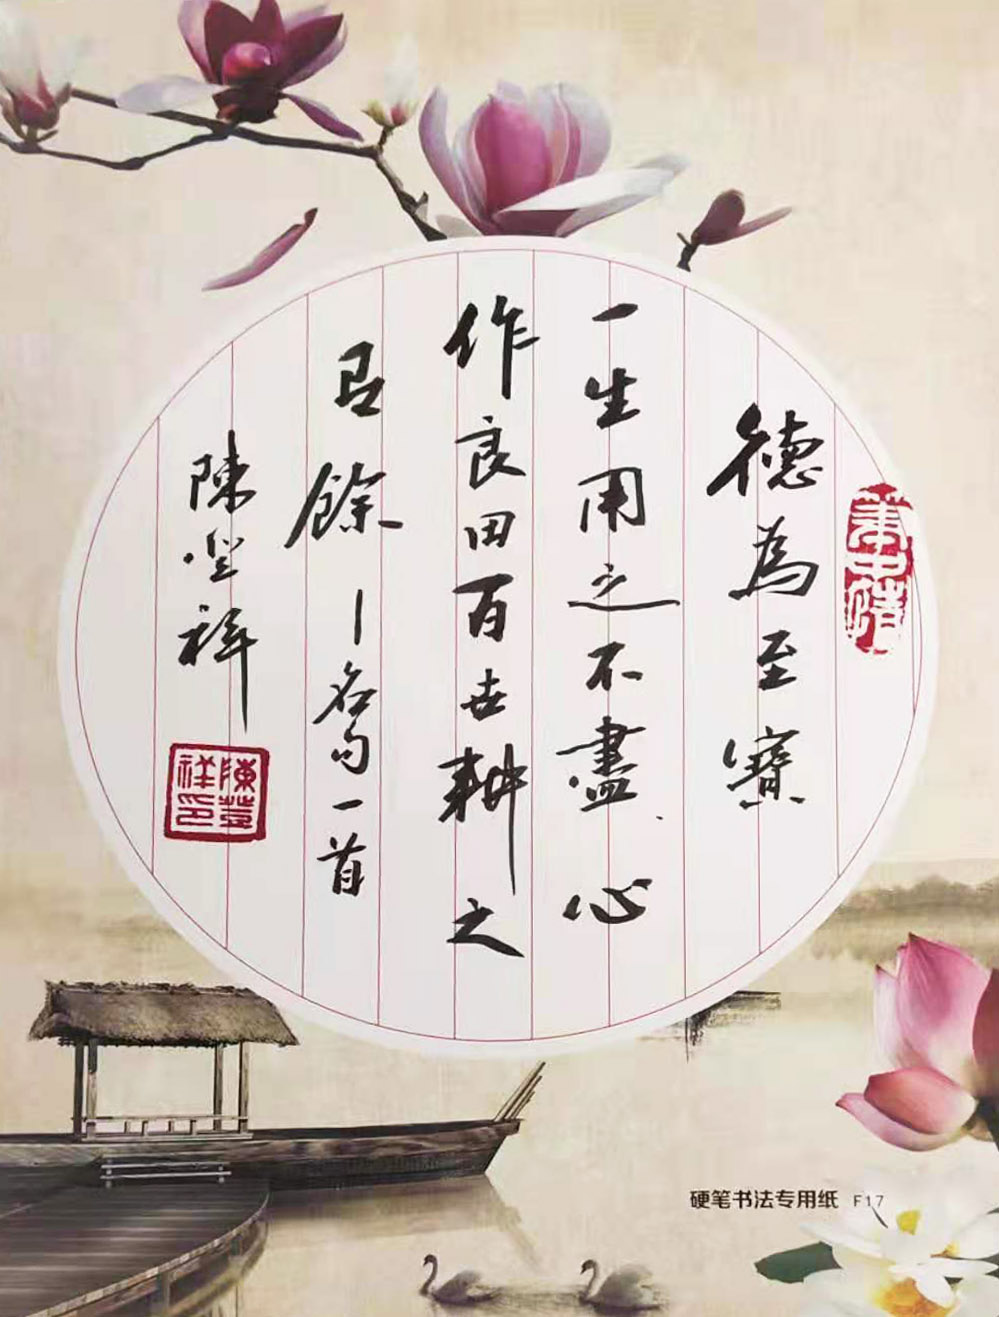 筆中情
德為至寶
一生用之不盡、心
作良田百世耕之
餘—名句一首
陳登祥
陳登祥印
硬笔书法专用纸 F17